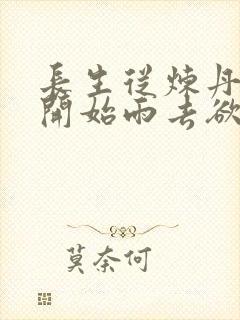 長生從煉丹
開始雨去欲
莫奈何